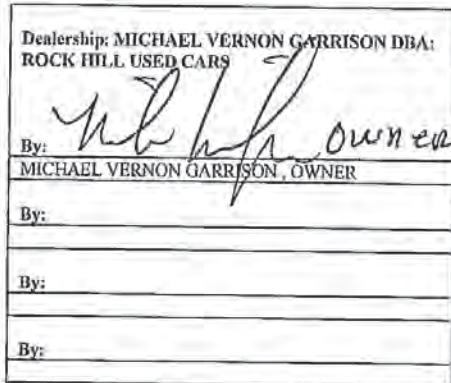 Dealership: MICHAEL VERNON GARRISON DBA:
ROCK HILL USED CARS
By: owner
MICHAEL VERNON GARRISON , OWNER
By:
By:
By: